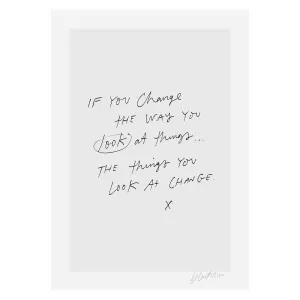 IF YOU Change
THE WAY YOU
look at things...
THE things YOU
LOOK At CHANGE.
X